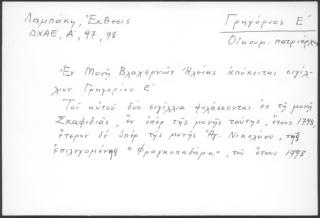 Λαμπάκη, Ἔκθεσις
ΔΧΑΕ, Α', 97, 98
Γρηγόριος Ε'
Οἰκουμ. πατριάρχης
Ἐν Μονῇ Βλαχερνῶν Ἠλείας ἀπόκειται σιγίλ-
λιον Γρηγορίου Ε'
Τοῦ αὐτοῦ δύο σιγίλλια φυλάσσονται ἐν τῇ μονῇ
Σκαφιδιᾶς, ἓν ὑπὲρ τῆς μονῆς ταύτης, ἔτους 1798,
ἕτερον δὲ ὑπὲρ τῆς μονῆς Ἁγ. Νικολάου, τῆς
ἐπιλεγομένης "Φραγκοπηδήμα", τοῦ ἔτους 1798